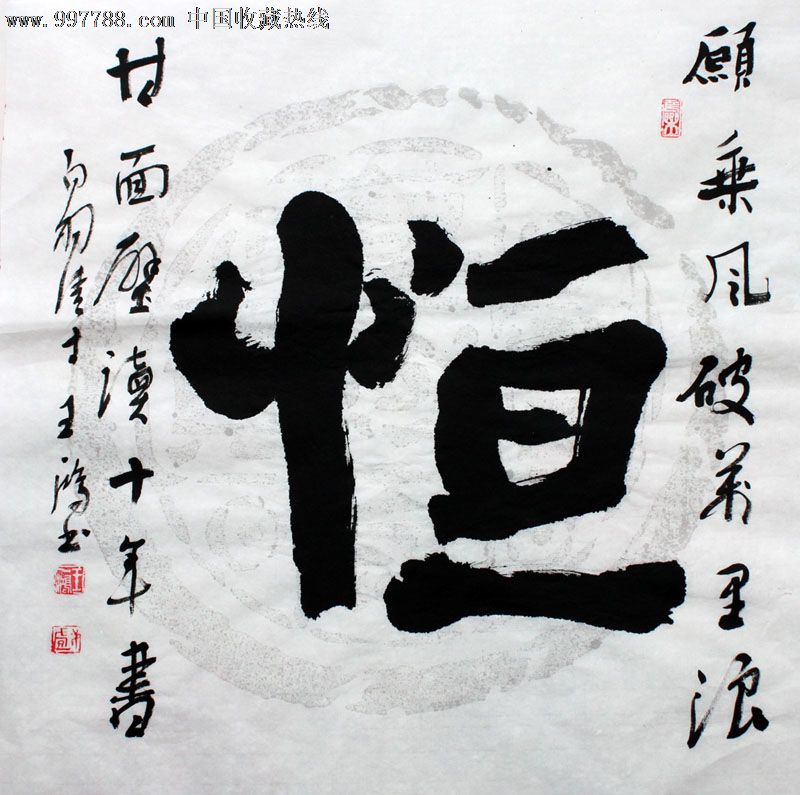 www.997788.com 中国收藏热线
願乘风破萬里浪
恒
甘面壁讀十年書
王鴻书